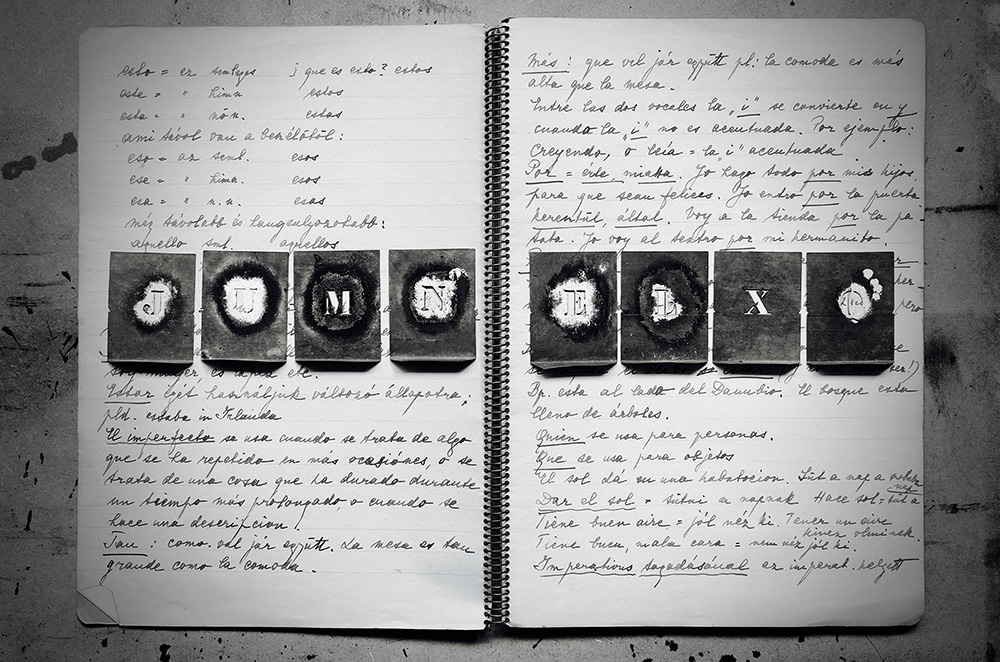 esto = ez semleges ¿ que es esto? estos
este = " hímn estos
esta = " nőn. estas
ami távol van a beszélőtől:
eso = az seml. esos
ese = " hímn. esos
esa = " n.n. esas
még távolabb és hangsúlyozottabb:
aquello sml. aquellos
J U M N
soy mujer es lápiz etc.
Estar igét használjuk változó állapotra,
pld. estaba in Irlanda
El imperfecto se usa cuando se trata de algo
que se la repetido en más ocasiónes, o se
trata de una cosa que ha durado durante
un tiempo más prolongado, o cuando se
hace una descripcion.
Tan: como. val jár együtt. La mesa es tan
grande como la comoda.
Más: que vel jár együtt pl: la comoda es más
alta que la mesa.
Entre las dos vocales la „i" se convierte en y
cuando la „i" no es acentuada. Por ejemplo:
Creyendo, o leía = la „i" acentuada
Por = érte, miatta. Yo hago todo por mis hijos
para que sean felices. Yo entro por la puerta
keresztül, által. Voy a la tienda por la pa-
tata. Yo voy al teatro por mi hermanito.
E L X
Bp. esta al lado del Danubio. El bosque esta
lleno de árboles.
Quien se usa para personas.
Que se usa para objetos
El sol dá en una habatocion. Süt a nap a
Dar el sol = sütni a napnak Hace sol = süt a nap
Tiene buen aire = jól néz ki. Tener un aire
Tiene buen, mala cara = nem néz jól ki.
Imperativus tagadásánál az imperat. helyett